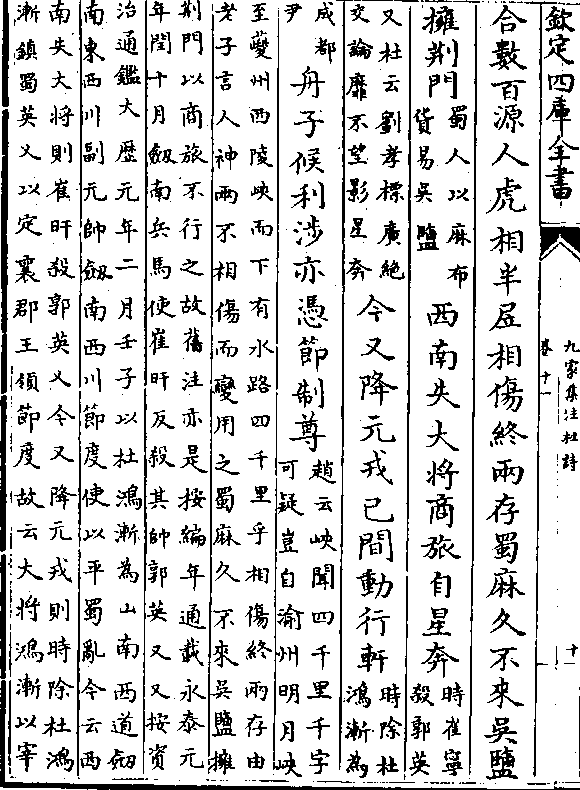 欽定四庫全書
九家集注杜詩
卷十一
十一
合數百源人虎相半居相傷終兩存蜀麻久不來吳鹽
擁荆門蜀人以麻布貨易吳鹽西南失大將商旅自星奔時崔寧殺郭英
又杜云劉孝標廣絶交論靡不望影星奔今又降元戎已間動行軒時除杜鴻漸為
成都尹舟子候利涉亦憑節制尊趙云峽聞四千里千字可疑豈自渝州明月峽
至夔州西陵峽而下有水路四千里乎相傷終兩存由
老子言人神兩不相傷而變用之蜀麻久不來吳鹽擁
荆門以商旅不行之故舊注亦是按編年通載永泰元
年閏十月劔南兵馬使崔旰反殺其帥郭英乂又按資
治通鑑大歴元年二月壬子以杜鴻漸為山南西道劔
南東西川副元帥劔南西川節度使以平蜀亂今云西
南失大將則崔旰殺郭英乂今又降元戎則時除杜鴻
漸鎮蜀英乂以定襄郡王領節度故云大將鴻漸以宰